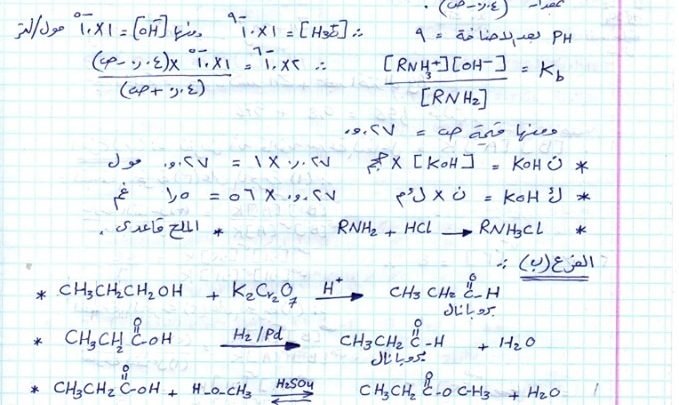 (٠.٤ - ص)
PH بعد الاضافة = ٩ ∴ [H₃O⁺] = ١×١٠⁻⁹ ومنها [OH⁻] = ١×١٠⁻⁵ مول/لتر
Kb = [RNH₃⁺][OH⁻] / [RNH₂] ∴ ٢×١٠⁻٦ = ١×١٠⁻٥ × (٠.٤ - ص) / (٠.٤ + ص)
ومنها قيمة ص = ٠.٢٧
* ن KOH = [KOH] × حجم = ٠.٢٧ × ١ = ٠.٢٧ مول
* ك KOH = ن × ك.م = ٠.٢٧ × ٥٦ = ١٥ غم
* RNH₂ + HCl → RNH₃Cl * الملح قاعدي.
الفرع (ب) :
* CH₃CH₂CH₂OH + K₂Cr₂O₇ —H⁺→ CH₃CH₂C(=O)-H
بروبانال
* CH₃CH₂C(=O)-OH —H₂/Pd→ CH₃CH₂C(=O)-H + H₂O
بروبانال
* CH₃CH₂C(=O)-OH + H-O-CH₃ ⇌(H₂SO₄) CH₃CH₂C(=O)-OC-H₃ + H₂O